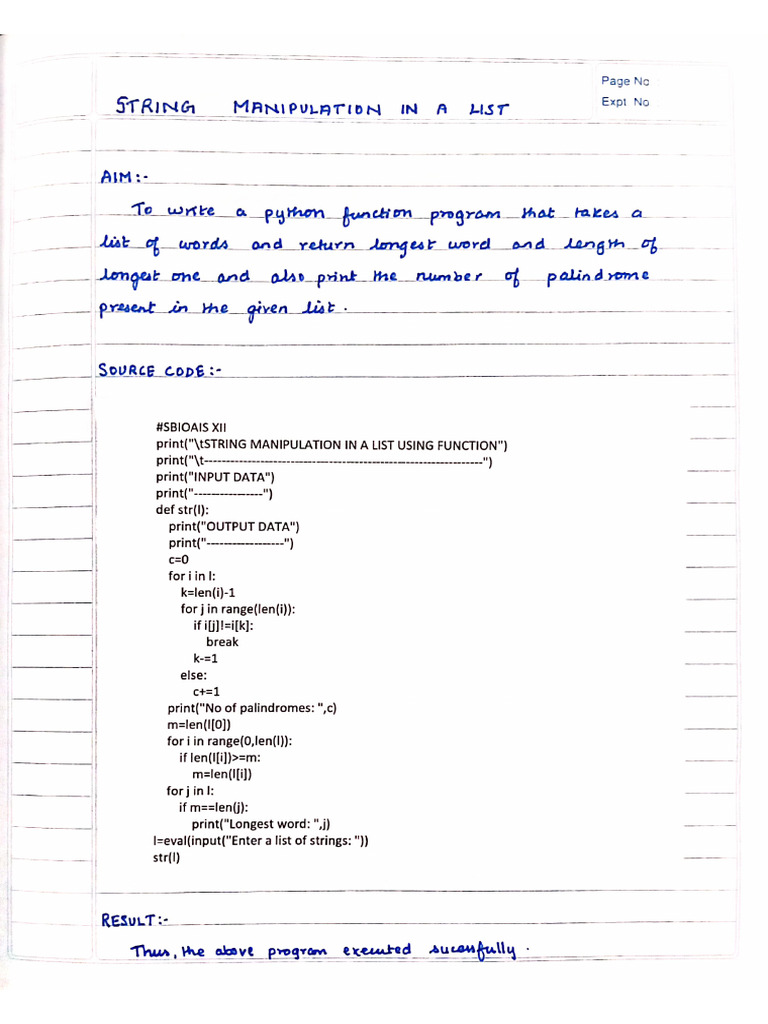 Page No
Expt. No
STRING MANIPULATION IN A LIST
AIM:-
To write a python function program that takes a
list of words and return longest word and length of
longest one and also print the number of palindrome
present in the given list.
SOURCE CODE:-
#SBIOAIS XII
print("\tSTRING MANIPULATION IN A LIST USING FUNCTION")
print("\t-----------------------------------------------------------------")
print("INPUT DATA")
print("----------------")
def str(l):
print("OUTPUT DATA")
print("------------------")
c=0
for i in l:
k=len(i)-1
for j in range(len(i)):
if i[j]!=i[k]:
break
k-=1
else:
c+=1
print("No of palindromes: ",c)
m=len(l[0])
for i in range(0,len(l)):
if len(l[i])>=m:
m=len(l[i])
for j in l:
if m==len(j):
print("Longest word: ",j)
l=eval(input("Enter a list of strings: "))
str(l)
RESULT:-
Thus, the above program executed sucessfully.